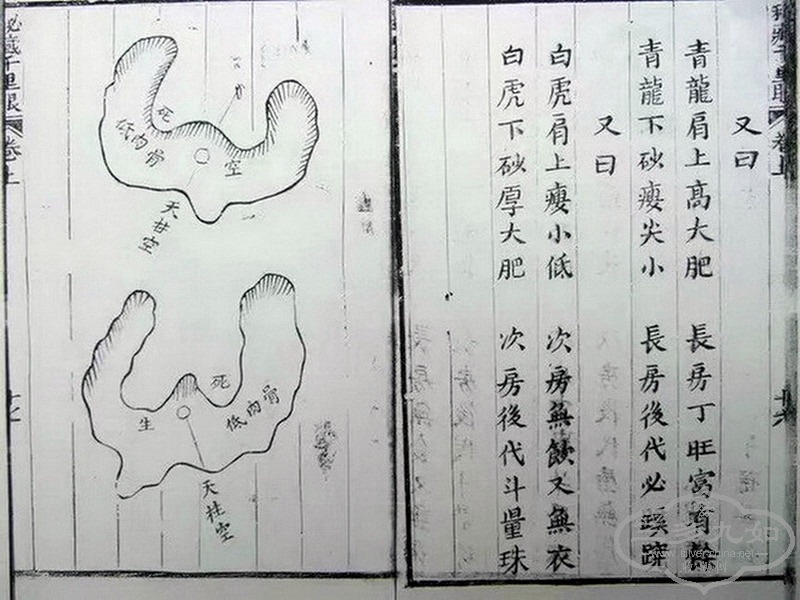 千里眼
卷上
又曰
青龍肩上高大肥 長房丁旺富有
青龍下砂瘦尖小 長房後代必蹊
又曰
白虎肩上瘦小低 次房無飲又無衣
白虎下砂厚大肥 次房後代斗量珠
秘藏千里眼
卷上
十七
死
低肉骨
空
天柱空
死
生
低肉骨
天柱空